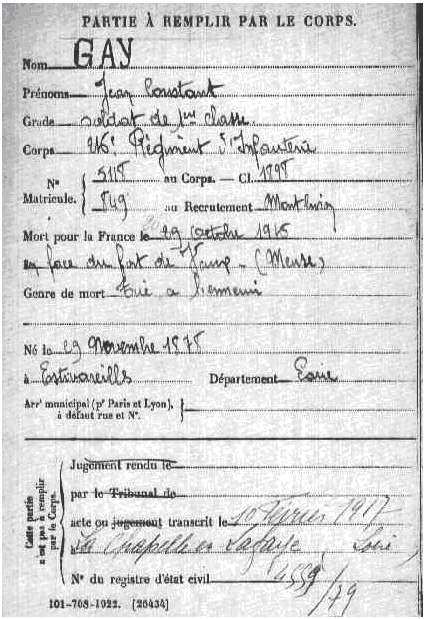 PARTIE À REMPLIR PAR LE CORPS.
Nom GAY
Prénoms Jean Constant
Grade soldat de 1ère classe
Corps 216e Régiment d'Infanterie
N° Matricule. { 5118 au Corps. — Cl. 1898
849 au Recrutement Montluçon
Mort pour la France le 29 octobre 1916
en face du fort de Vaux - (Meuse)
Genre de mort Tué à l'ennemi
Né le 29 Novembre 1878
à Estivareilles Département Loire
Arrt municipal (pr Paris et Lyon), à défaut rue et N°. }
Cette partie n'est pas à remplir par le Corps.
Jugement rendu le
par le Tribunal de
acte ou jugement transcrit le 10 Février 1917
à La Chapelle en Lafaye, Loire
N° du registre d'état civil
/79
101-708-1922. [26434]